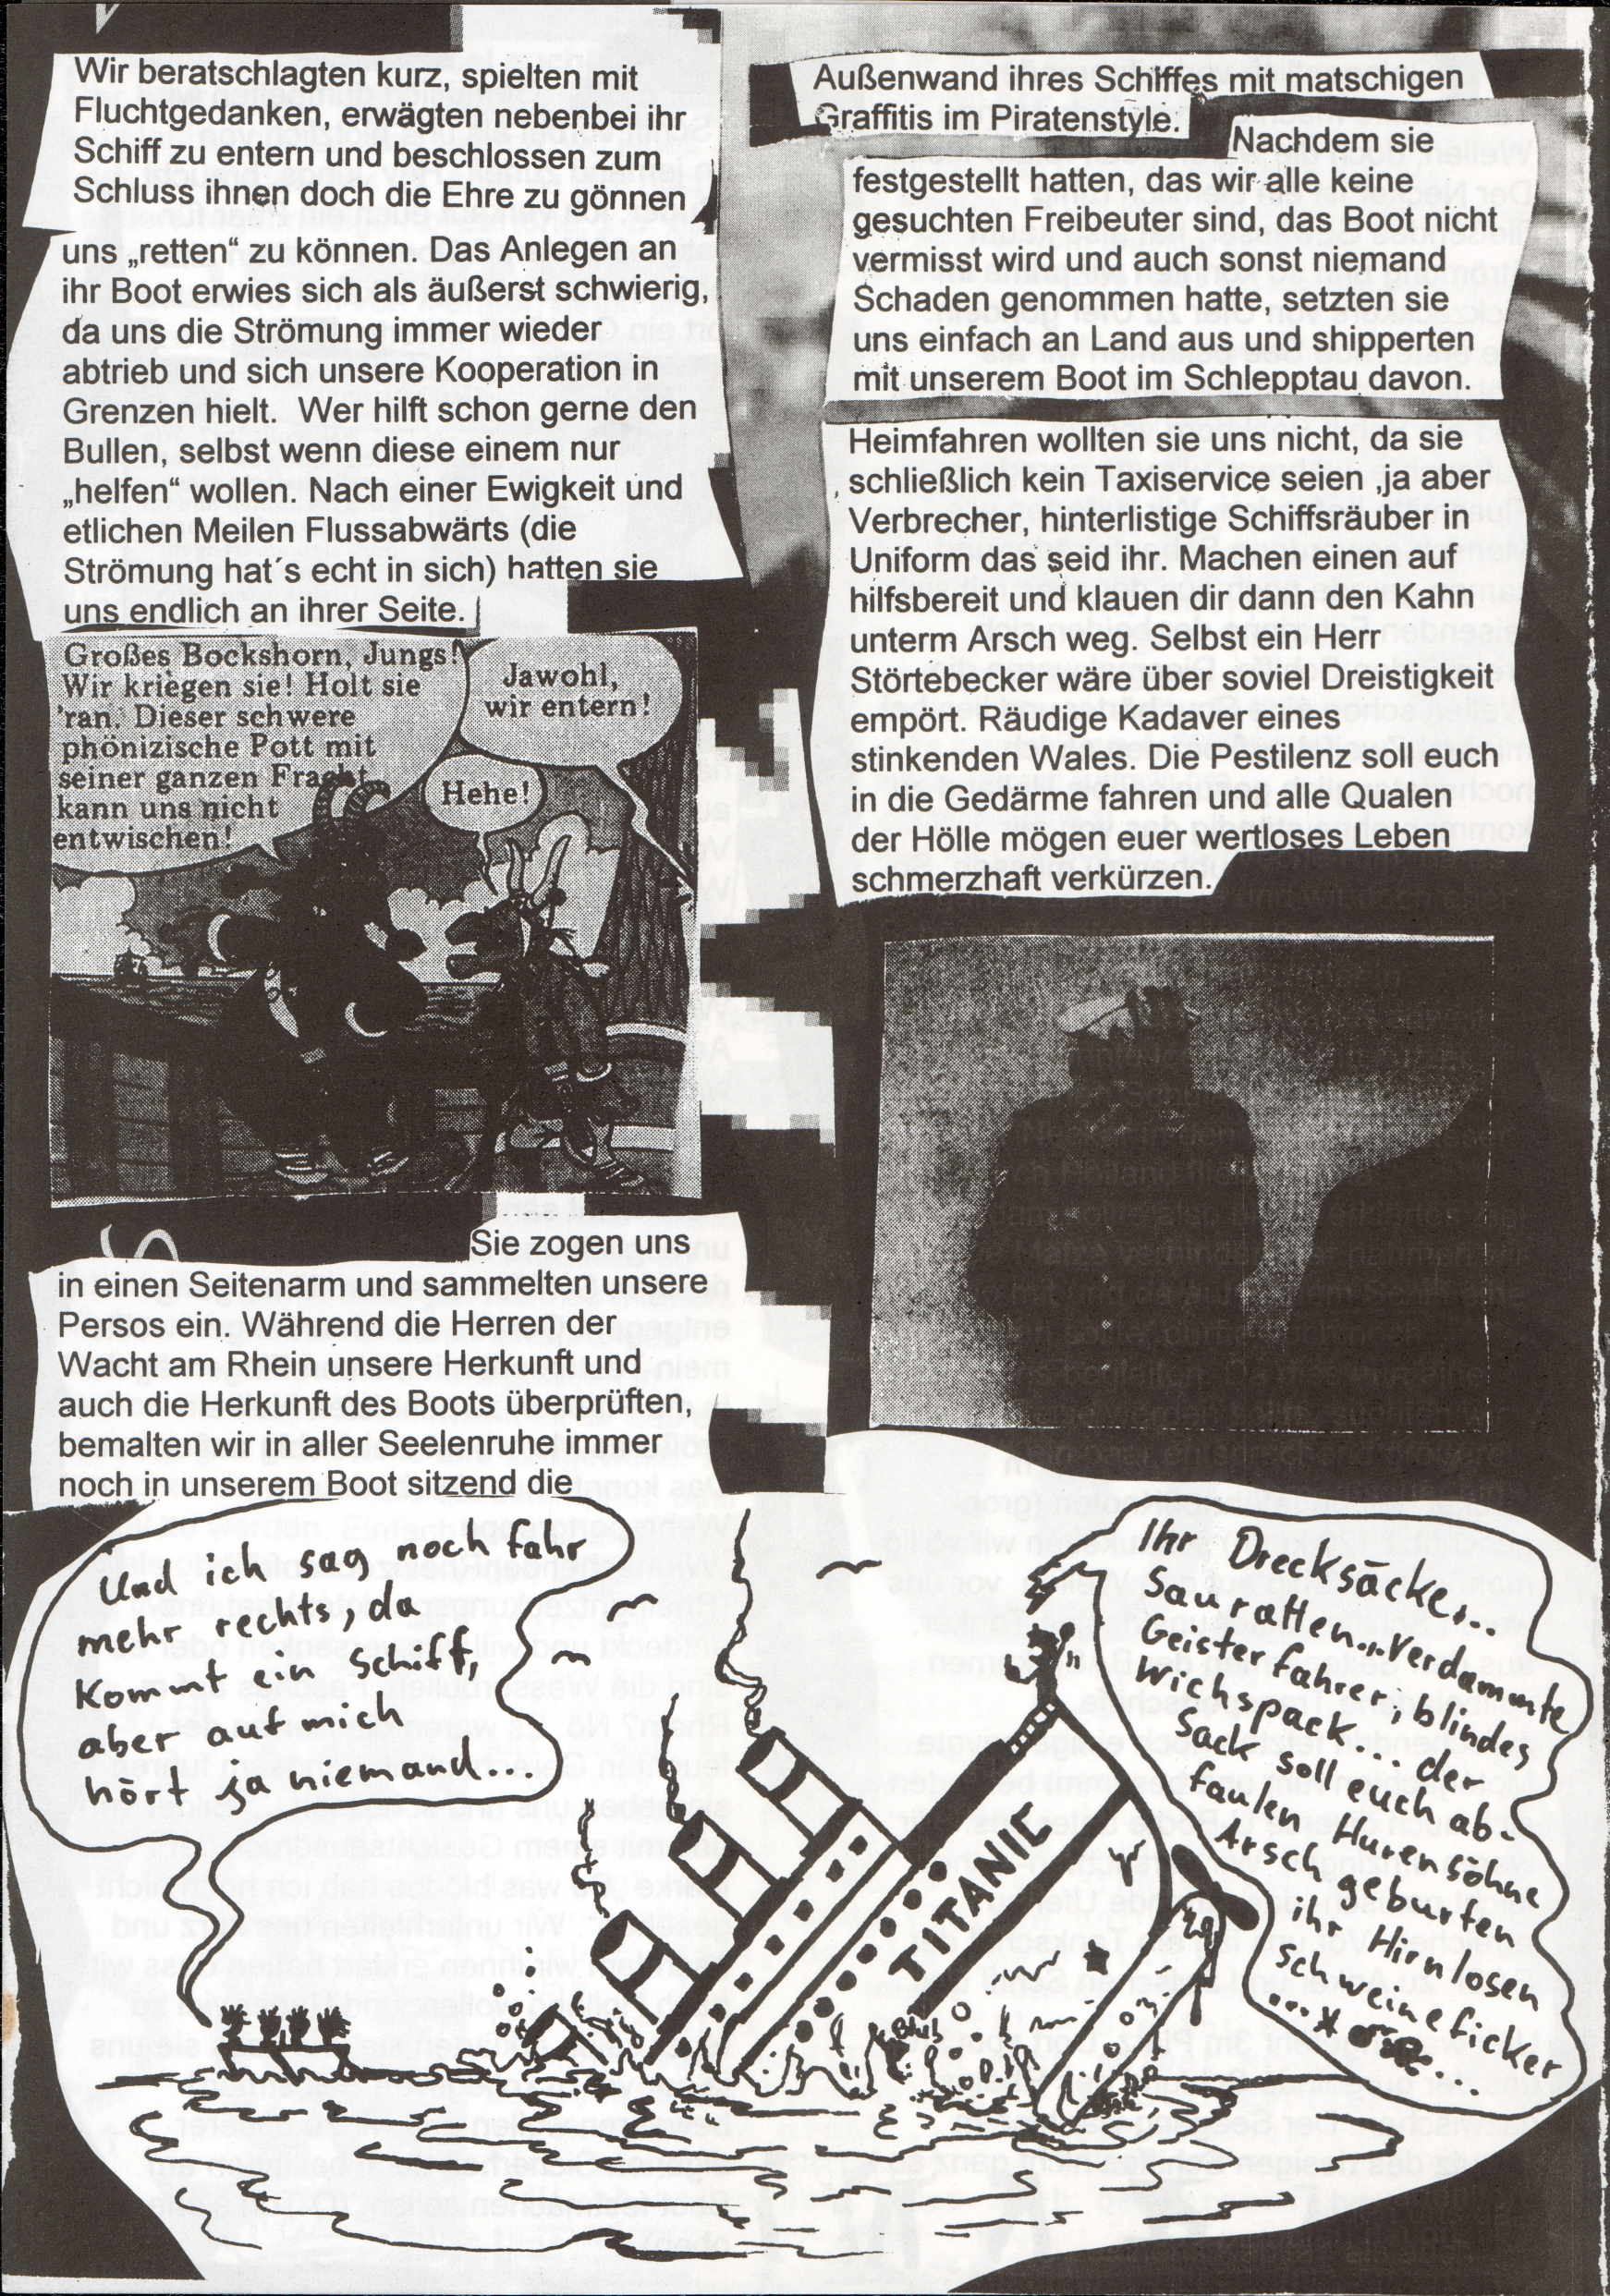 Wir beratschlagten kurz, spielten mit
Fluchtgedanken, erwägten nebenbei ihr
Schiff zu entern und beschlossen zum
Schluss ihnen doch die Ehre zu gönnen
uns „retten“ zu können. Das Anlegen an
ihr Boot erwies sich als äußerst schwierig,
da uns die Strömung immer wieder
abtrieb und sich unsere Kooperation in
Grenzen hielt.  Wer hilft schon gerne den
Bullen, selbst wenn diese einem nur
„helfen“ wollen. Nach einer Ewigkeit und
etlichen Meilen Flussabwärts (die
Strömung hat´s echt in sich) hatten sie
uns endlich an ihrer Seite.
Großes Bockshorn, Jungs!
Wir kriegen sie! Holt sie
'ran. Dieser schwere
phönizische Pott mit
seiner ganzen Fracht
kann uns nicht
entwischen!
Jawohl,
wir entern!
Hehe!
Sie zogen uns
in einen Seitenarm und sammelten unsere
Persos ein. Während die Herren der
Wacht am Rhein unsere Herkunft und
auch die Herkunft des Boots überprüften,
bemalten wir in aller Seelenruhe immer
noch in unserem Boot sitzend die
Außenwand ihres Schiffes mit matschigen
Graffitis im Piratenstyle.
Nachdem sie
festgestellt hatten, das wir alle keine
gesuchten Freibeuter sind, das Boot nicht
vermisst wird und auch sonst niemand
Schaden genommen hatte, setzten sie
uns einfach an Land aus und shipperten
mit unserem Boot im Schlepptau davon.
Heimfahren wollten sie uns nicht, da sie
schließlich kein Taxiservice seien ,ja aber
Verbrecher, hinterlistige Schiffsräuber in
Uniform das seid ihr. Machen einen auf
hilfsbereit und klauen dir dann den Kahn
unterm Arsch weg. Selbst ein Herr
Störtebecker wäre über soviel Dreistigkeit
empört. Räudige Kadaver eines
stinkenden Wales. Die Pestilenz soll euch
in die Gedärme fahren und alle Qualen
der Hölle mögen euer wertloses Leben
schmerzhaft verkürzen.
Und ich sag noch fahr
mehr rechts, da
kommt ein Schiff,
aber auf mich
hört ja niemand...
TITANIC
Blub!
Ihr Drecksäcke...
Sauratten... Verdammte
Geisterfahrer; blindes
Wichspack... der
Sack soll euch ab-
faulen Hurensöhne
Arschgeburten
ihr Hirnlosen
schweineficker